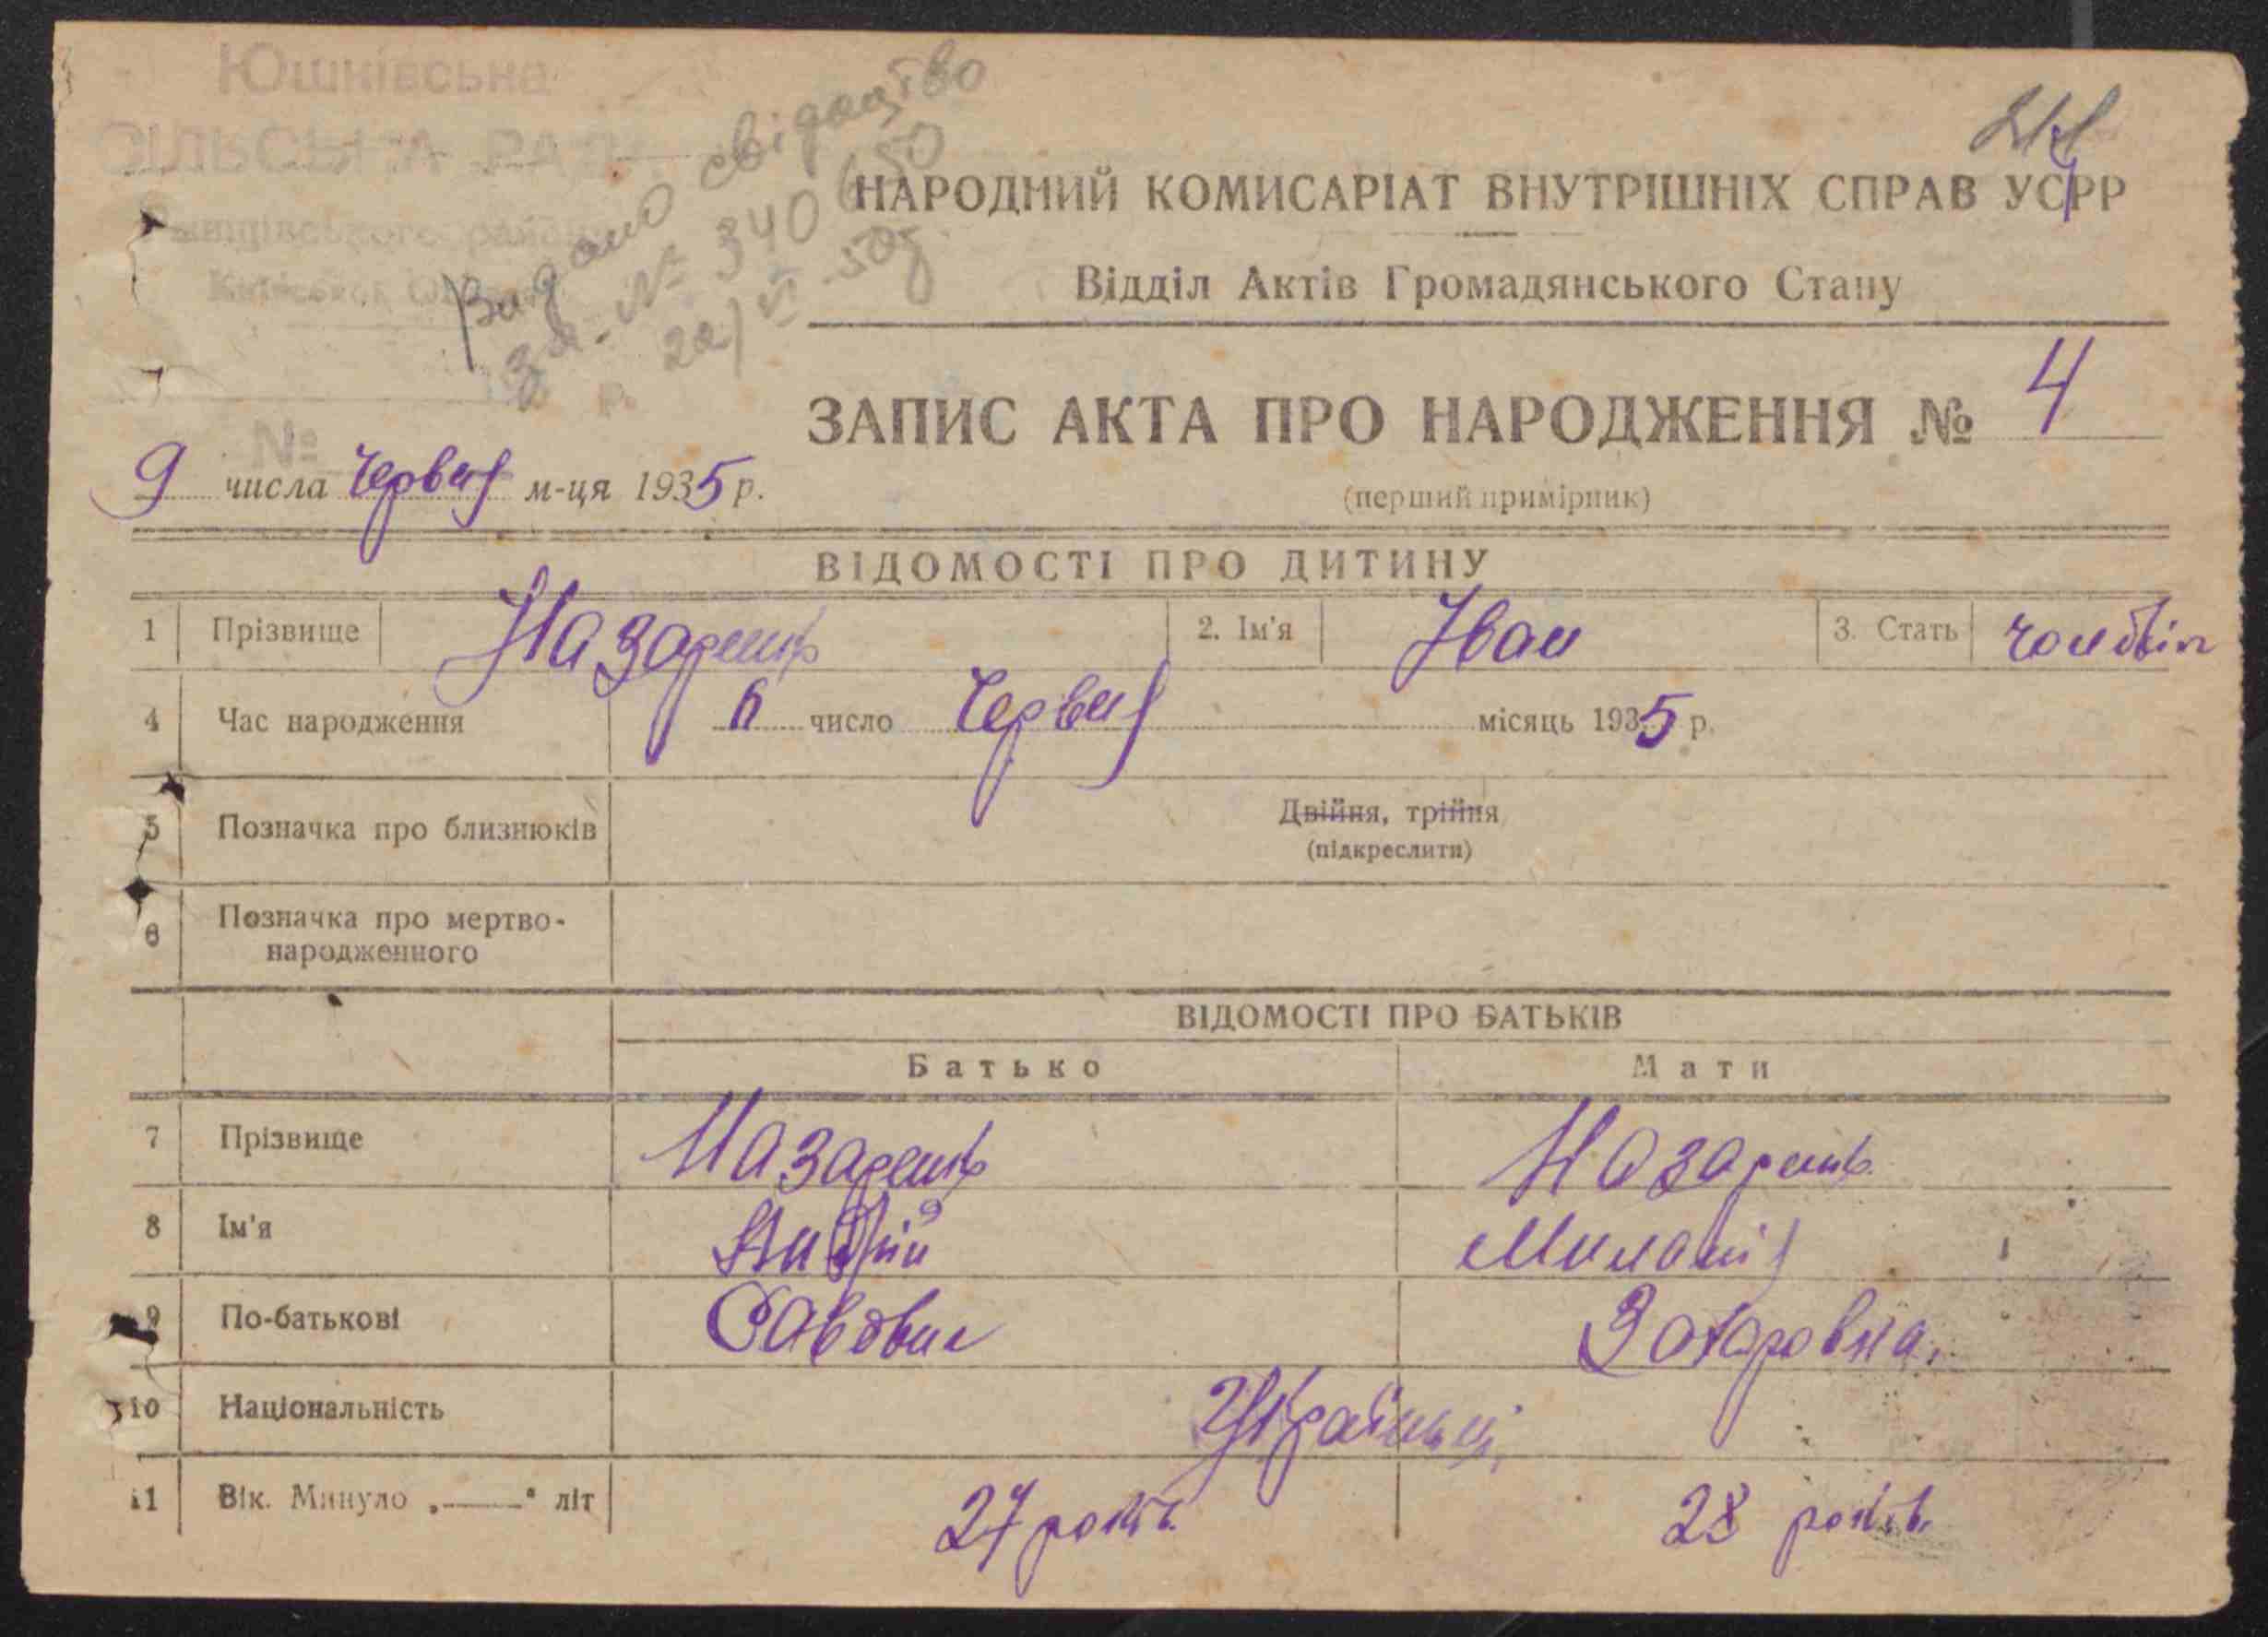 Юшнівська
СІЛЬСЬКА РАДА
району
Київської
Видано свідоцтво
за № 340650
22/VI 50 р.
НАРОДНИЙ КОМИСАРІАТ ВНУТРІШНІХ СПРАВ УСРР
Відділ Актів Громадянського Стану
ЗАПИС АКТА ПРО НАРОДЖЕННЯ № 4
№
9 числа Червня м-ця 1935 р.
(перший примірник)
ВІДОМОСТІ ПРО ДИТИНУ
1 Прізвище Назарець 2. Ім'я Іван 3. Стать
4 Час народження 6 число Червня місяць 1935 р.
5 Позначка про близнюків Двійня, трійня
(підкреслити)
6 Позначка про мертво-
народженного
ВІДОМОСТІ ПРО БАТЬКІВ
Батько Мати
7 Прізвище Назарець Назарець
8 Ім'я Андрій Миланія
9 По-батькові Савович Захаровна.
10 Національність Українці
11 Вік. Минуло „——“ літ 27 років. 28 років.